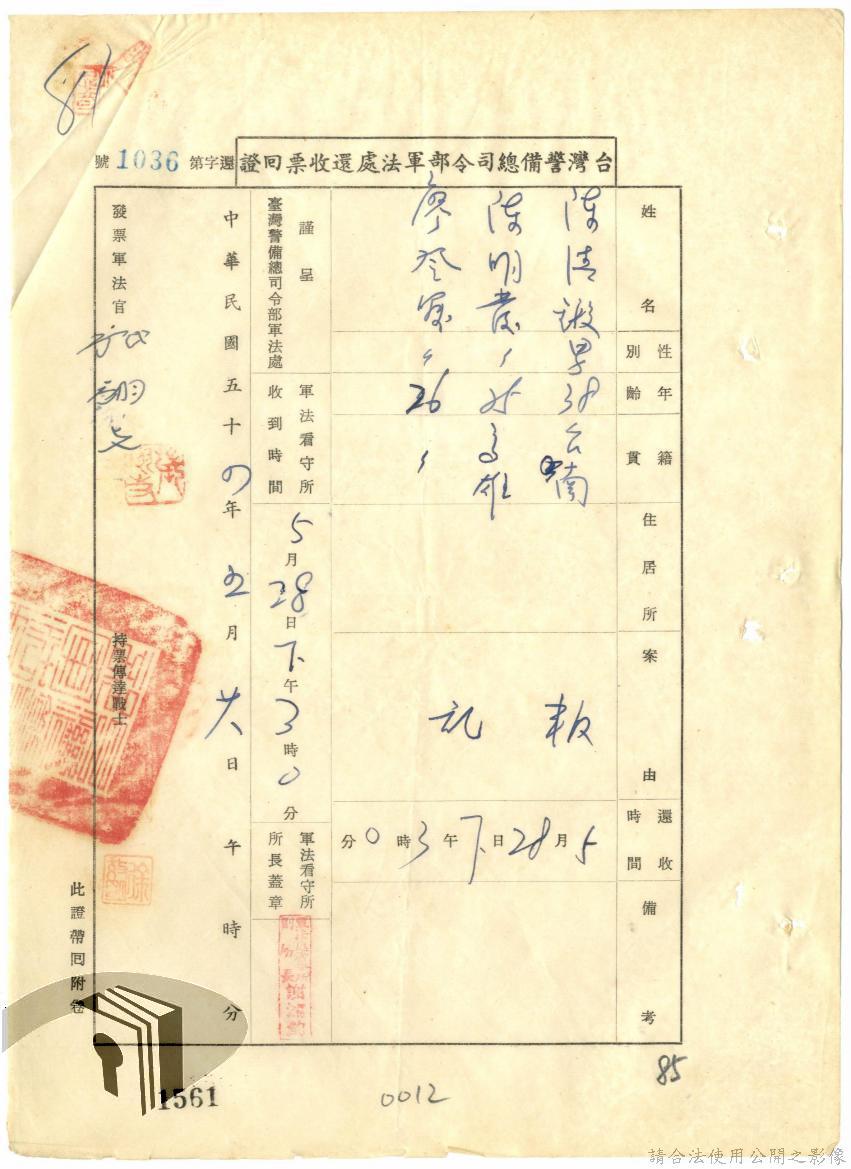 81
台灣警備總司令部軍法處還收票回證
還字第1036號
姓名
陳清
陳明發
廖登
性別
男
〃
〃
年齡
38
25
26
籍貫
台南
高雄
〃
住居所
案由
叛亂
還收時間
5月28日下午3時0分
備考
謹呈
臺灣警備總司令部軍法處
軍法看守所收到時間
5月28日下午3時0分
軍法看守所所長蓋章
中華民國五十四年五月廿八日午時分
發票軍法官
持票傳達戰士
此證帶回附卷
1561
0012
85
請合法使用公開之影像